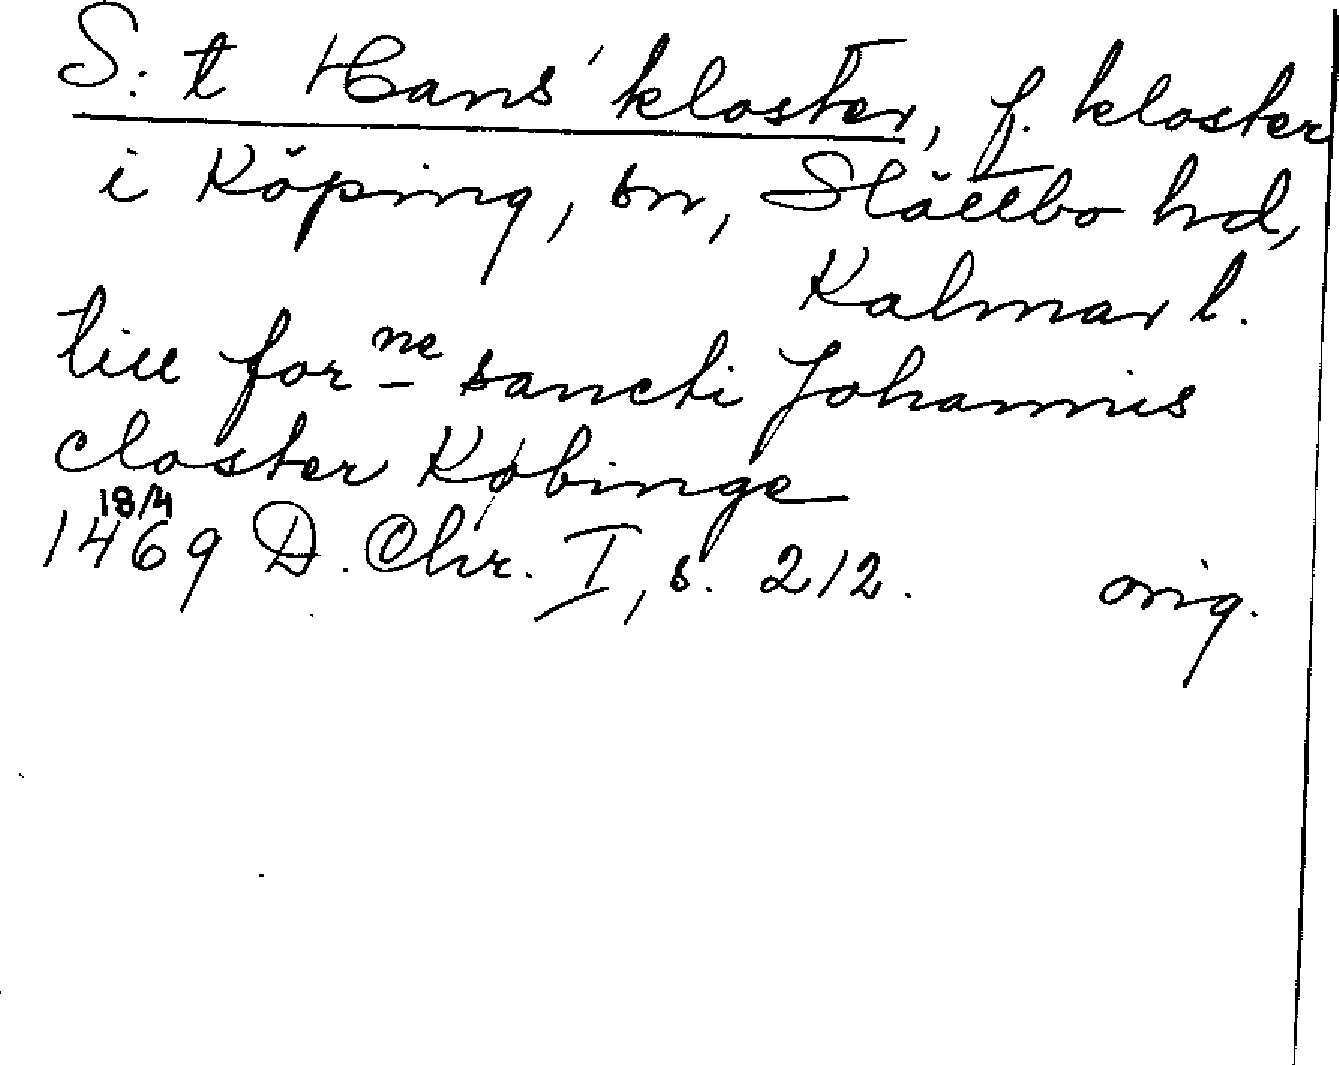 S:t Hans' kloster, f. kloster
i Köping, sn, Slättbo hd,
Kalmar l.
till forne sancti Johannis
closter Købinge
18/4
1469 D. Chr. I, s. 212. orig.